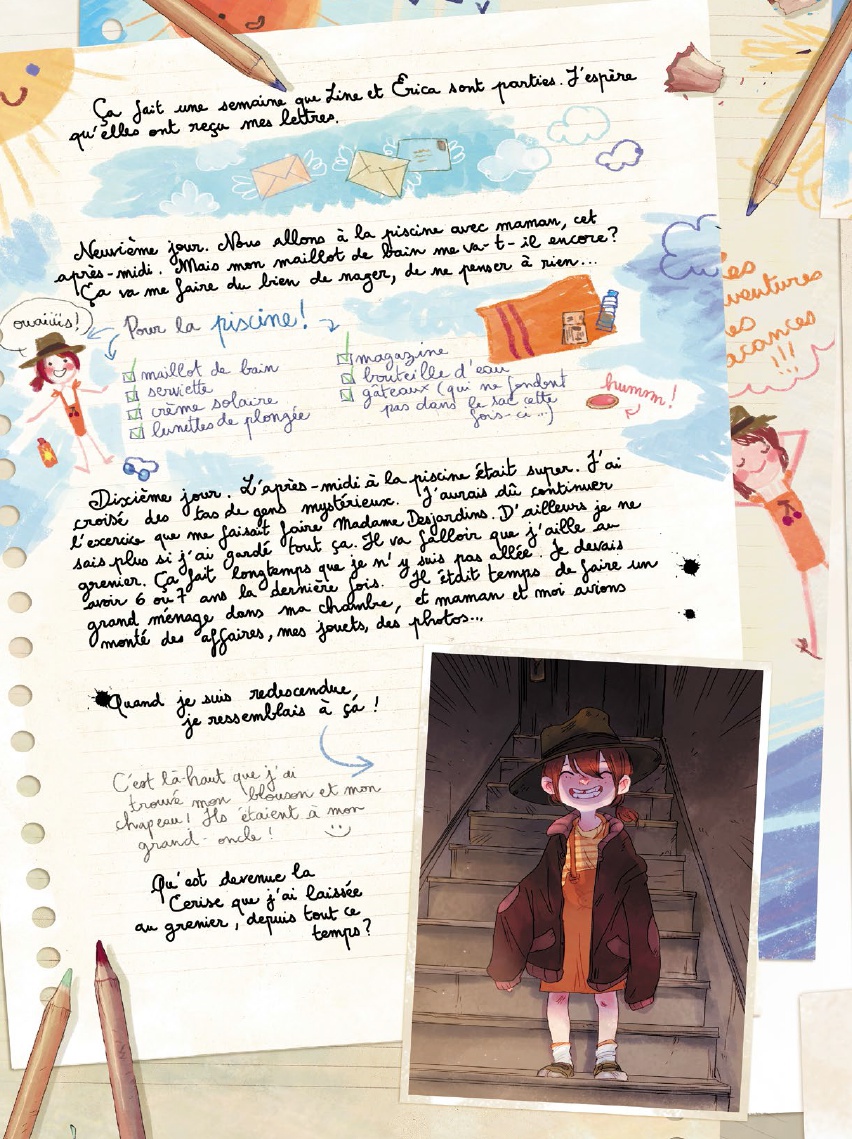 Ça fait une semaine que Line et Erica sont parties. J'espère
qu'elles ont reçu mes lettres.
Neuvième jour. Nous allons à la piscine avec maman, cet
après-midi. Mais mon maillot de bain me va-t-il encore?
Ça va me faire du bien de nager, de ne penser à rien...
ouaiiiis!
Pour la piscine!
maillot de bain
serviette
crème solaire
lunettes de plongée
magazine
bouteille d'eau
gâteaux (qui ne fondent
pas dans le sac cette
fois-ci...)
humm!
Les
aventures
des
vacances
!!!
Dixième jour. L'après-midi à la piscine était super. J'ai
croisé des tas de gens mystérieux. J'aurais dû continuer
l'exercice que me faisait faire Madame Desjardins. D'ailleurs je ne
sais plus si j'ai gardé tout ça. Il va falloir que j'aille au
grenier. Ça fait longtemps que je n'y suis pas allée. Je devais
avoir 6 ou 7 ans la dernière fois. Il était temps de faire un
grand ménage dans ma chambre, et maman et moi avions
monté des affaires, mes jouets, des photos...
Quand je suis redescendue,
je ressemblais à ça !
C'est là-haut que j'ai
trouvé mon blouson et mon
chapeau! Ils étaient à mon
grand-oncle !
Qu'est devenue la
Cerise que j'ai laissée
au grenier, depuis tout ce
temps?